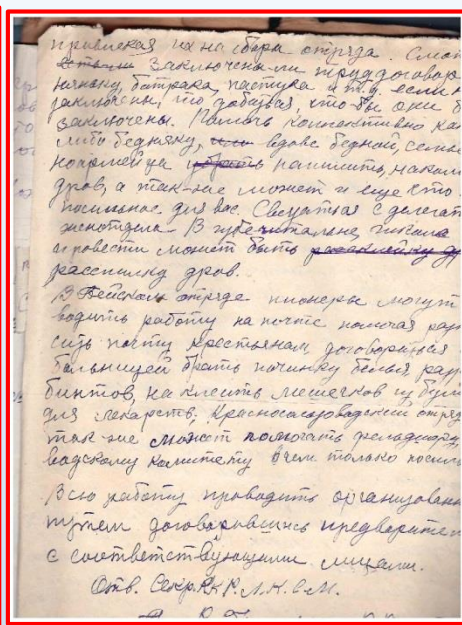 привлекая их на сбора отряда. Смот
заключены ли труддоговор
няньку, батрака, пастуха и т.д. если н
заключены, то добиться, что бы они б
заключены. Помочь коллективно как
либо бедняку, или вдове бедной, семье
ноармейца убрать напилить, накол
дров, а так-же может и еще что
посильное для вас. Связаться с делегат
женотдела. В избе-читальне, школе
провести может быть расклейку
распилку дров.
В Бейском отряде пионеры могут
водить работу на почте помогая раз
сить почту крестьянам договориться
больницей брать починку белья
бинтов, наклеить мешечков из бум
для лекарств, Краснос отряд
так-же сможет помогать
водскому комитету в чем только посил
Всю работу проводить организован
путем договорившись предварител
с соответствующими лицами.
Отв. Секр. РК Р.Л.К.С.М.